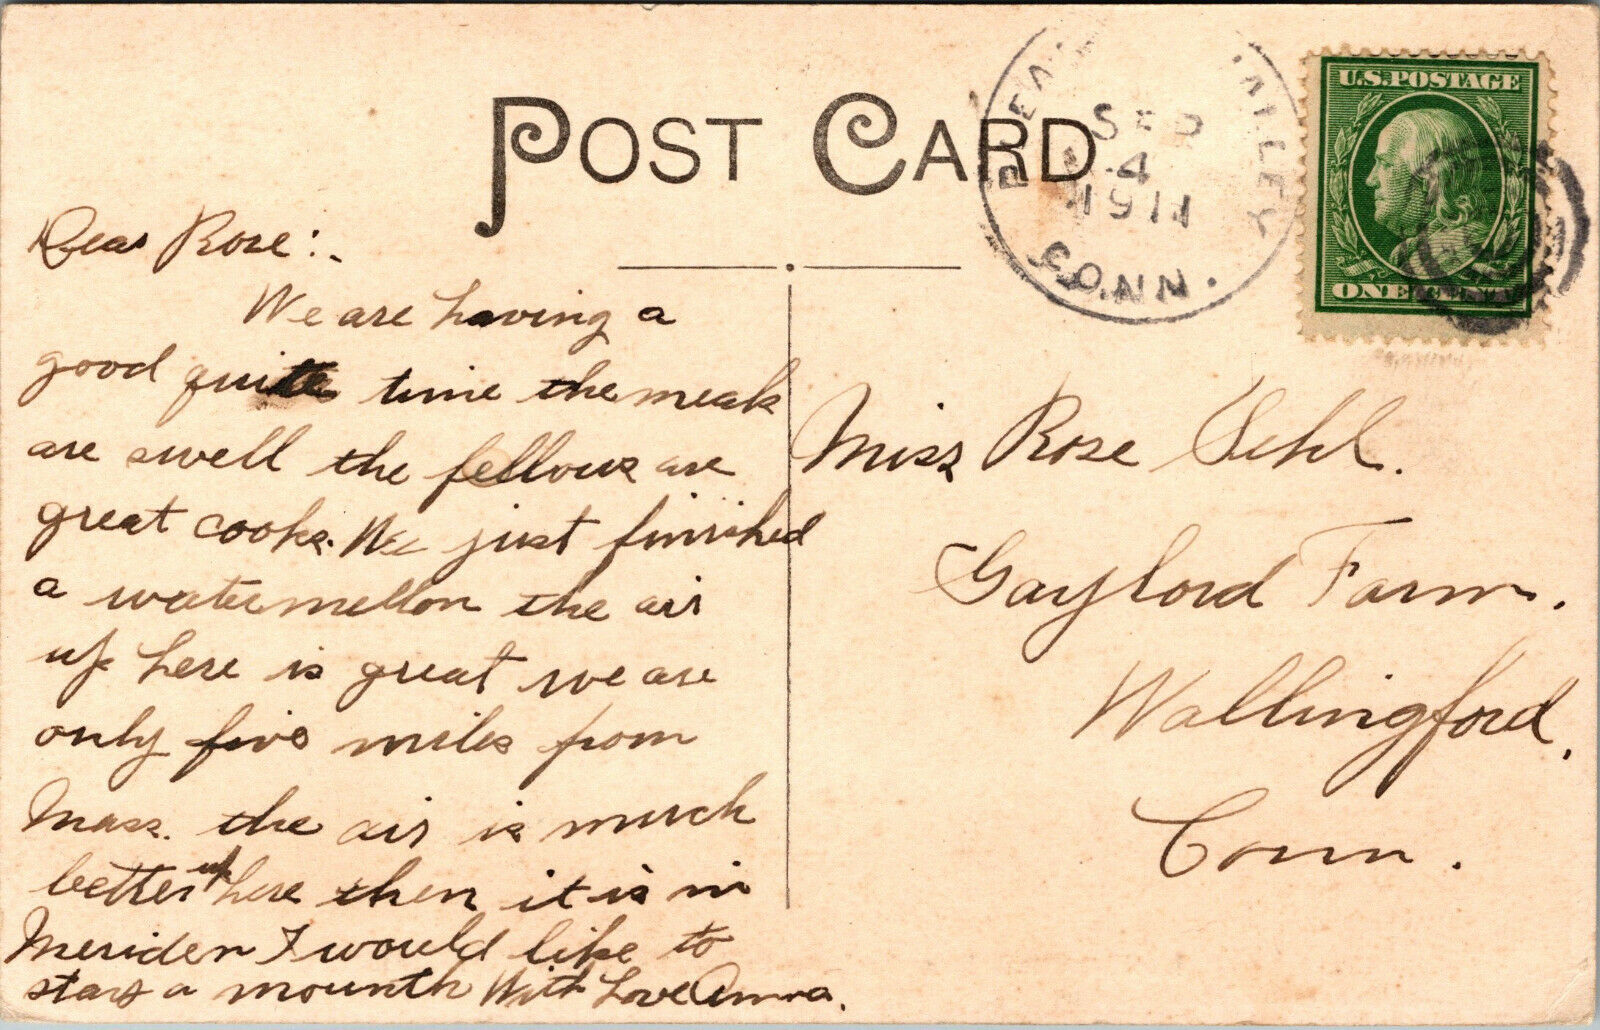 POST CARD
PLEA ALLEY
SEP
4
1911
CONN.
U.S. POSTAGE
ONE CENT
Dear Rose:-
We are having a
good quite time the meals
are swell the fellows are
great cooks. We just finished
a watermellon the air
up here is great we are
only five miles from
Mass. the air is much
better up here then it is in
Meriden I would like to
stay a mounth With Love Anna.
Miss Rose Sehl.
Gaylord Farm.
Wallingford,
Conn.